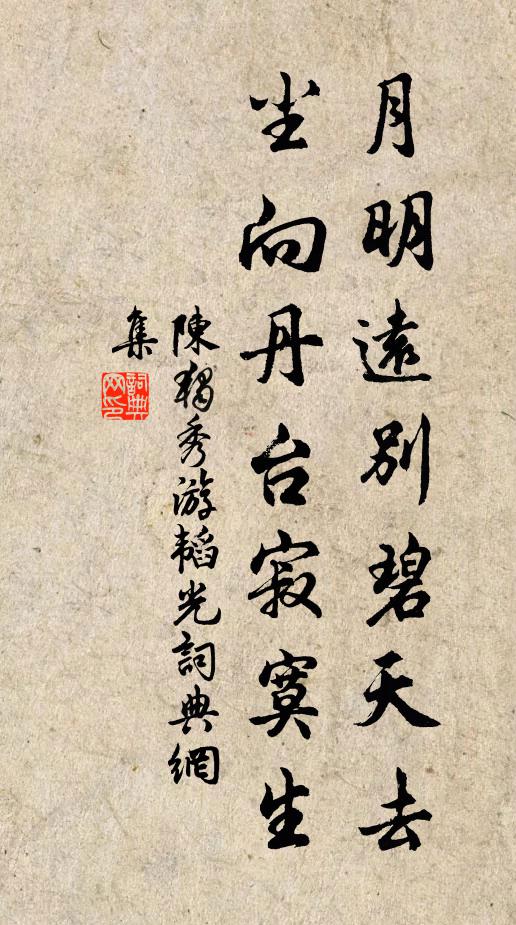 月明遠別碧天去
坐向丹台寂寞生
陳獨秀游韜光詞典網
集
詞典網印